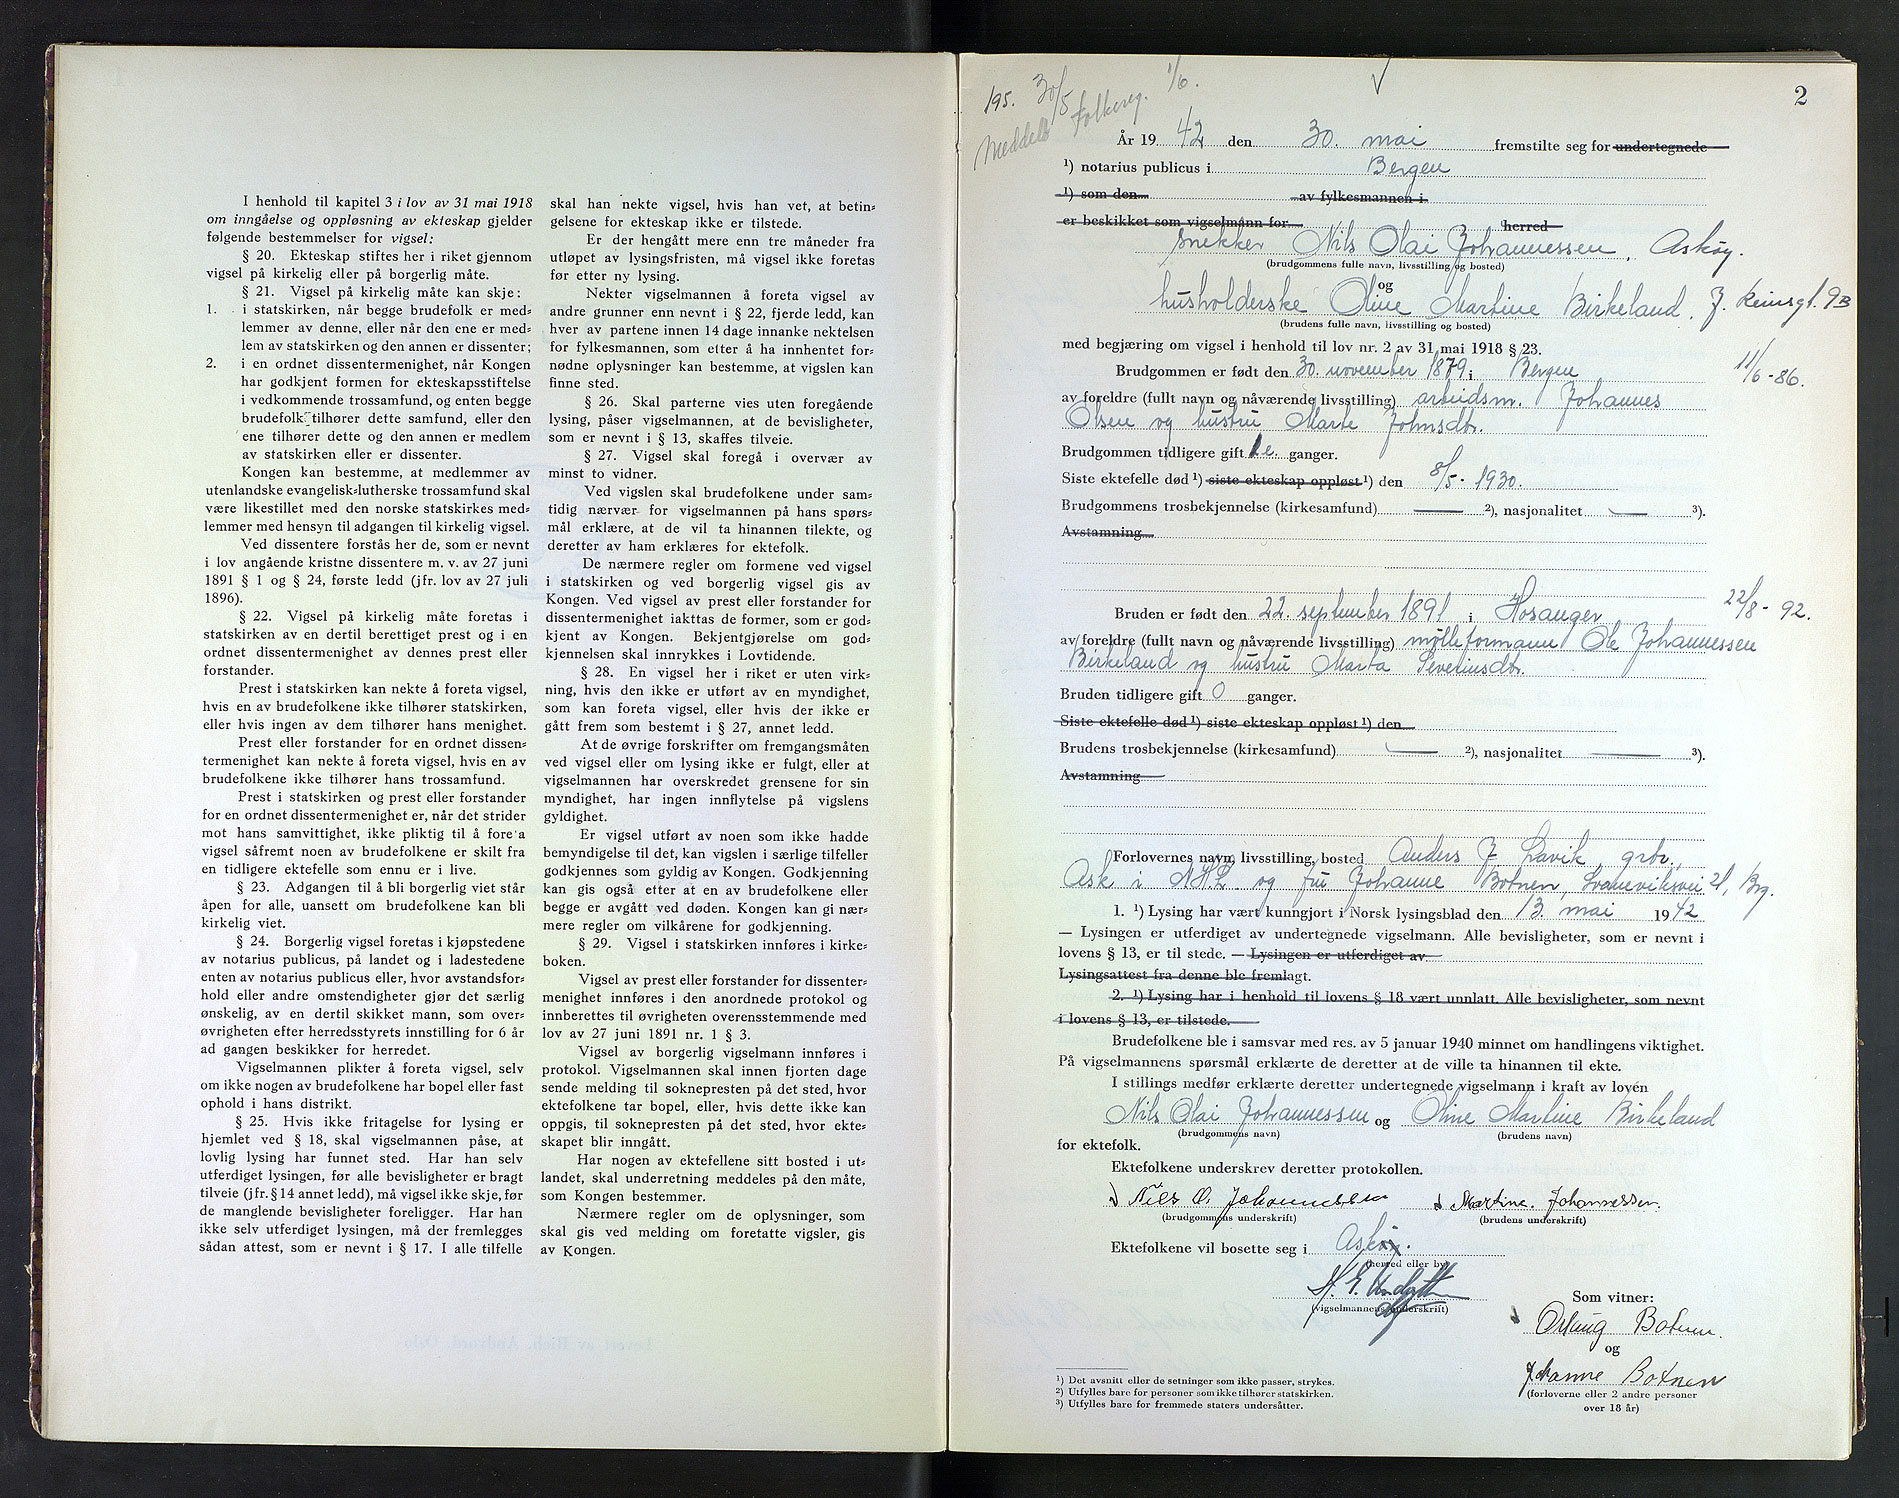 I henhold til kapitel 3 i lov av 31 mai 1918
om inngåelse og oppløsning av ekteskap gjelder
følgende bestemmelser for vigsel:
§ 20. Ekteskap stiftes her i riket gjennom
vigsel på kirkelig eller på borgerlig måte.
§ 21. Vigsel på kirkelig måte kan skje:
1. i statskirken, når begge brudefolk er med-
lemmer av denne, eller når den ene er med-
lem av statskirken og den annen er dissenter;
2. i en ordnet dissentermenighet, når Kongen
har godkjent formen for ekteskapsstiftelse
i vedkommende trossamfund, og enten begge
brudefolk tilhører dette samfund, eller den
ene tilhører dette og den annen er medlem
av statskirken eller er dissenter.
Kongen kan bestemme, at medlemmer av
utenlandske evangelisk-lutherske trossamfund skal
være likestillet med den norske statskirkes med-
lemmer med hensyn til adgangen til kirkelig vigsel.
Ved dissentere forstås her de, som er nevnt
i lov angående kristne dissentere m. v. av 27 juni
1891 § 1 og § 24, første ledd (jfr. lov av 27 juli
1896).
§ 22. Vigsel på kirkelig måte foretas i
statskirken av en dertil berettiget prest og i en
ordnet dissentermenighet av dennes prest eller
forstander.
Prest i statskirken kan nekte å foreta vigsel,
hvis en av brudefolkene ikke tilhører statskirken,
eller hvis ingen av dem tilhører hans menighet.
Prest eller forstander for en ordnet dissen-
termenighet kan nekte å foreta vigsel, hvis en av
brudefolkene ikke tilhører hans trossamfund.
Prest i statskirken og prest eller forstander
for en ordnet dissentermenighet er, når det strider
mot hans samvittighet, ikke pliktig til å fore a
vigsel såfremt noen av brudefolkene er skilt fra
en tidligere ektefelle som ennu er i live.
§ 23. Adgangen til å bli borgerlig viet står
åpen for alle, uansett om brudefolkene kan bli
kirkelig viet.
§ 24. Borgerlig vigsel foretas i kjøpstedene
av notarius publicus, på landet og i ladestedene
enten av notarius publicus eller, hvor avstandsfor-
hold eller andre omstendigheter gjør det særlig
ønskelig, av en dertil skikket mann, som over-
øvrigheten efter herredsstyrets innstilling for 6 år
ad gangen beskikker for herredet.
Vigselmannen plikter å foreta vigsel, selv
om ikke nogen av brudefolkene har bopel eller fast
ophold i hans distrikt.
§ 25. Hvis ikke fritagelse for lysing er
hjemlet ved § 18, skal vigselmannen påse, at
lovlig lysing har funnet sted. Har han selv
utferdiget lysingen, før alle bevisligheter er bragt
tilveie (jfr. § 14 annet ledd), må vigsel ikke skje, før
de manglende bevisligheter foreligger. Har han
ikke selv utferdiget lysingen, må der fremlegges
sådan attest, som er nevnt i § 17. I alle tilfelle
skal han nekte vigsel, hvis han vet, at betin-
gelsene for ekteskap ikke er tilstede.
Er der hengått mere enn tre måneder fra
utløpet av lysingsfristen, må vigsel ikke foretas
før etter ny lysing.
Nekter vigselmannen å foreta vigsel av
andre grunner enn nevnt i § 22, fjerde ledd, kan
hver av partene innen 14 dage innanke nektelsen
for fylkesmannen, som etter å ha innhentet for-
nødne oplysninger kan bestemme, at vigslen kan
finne sted.
§ 26. Skal parterne vies uten foregående
lysing, påser vigselmannen, at de bevisligheter,
som er nevnt i § 13, skaffes tilveie.
§ 27. Vigsel skal foregå i overvær av
minst to vidner.
Ved vigslen skal brudefolkene under sam-
tidig nærvær for vigselmannen på hans spørs-
mål erklære, at de vil ta hinannen tilekte, og
deretter av ham erklæres for ektefolk.
De nærmere regler om formene ved vigsel
i statskirken og ved borgerlig vigsel gis av
Kongen. Ved vigsel av prest eller forstander for
dissentermenighet iakttas de former, som er god-
kjent av Kongen. Bekjentgjørelse om god-
kjennelsen skal innrykkes i Lovtidende.
§ 28. En vigsel her i riket er uten virk-
ning, hvis den ikke er utført av en myndighet,
som kan foreta vigsel, eller hvis der ikke er
gått frem som bestemt i § 27, annet ledd.
At de øvrige forskrifter om fremgangsmåten
ved vigsel eller om lysing ikke er fulgt, eller at
vigselmannen har overskredet grensene for sin
myndighet, har ingen innflytelse på vigslens
gyldighet.
Er vigsel utført av noen som ikke hadde
bemyndigelse til det, kan vigslen i særlige tilfeller
godkjennes som gyldig av Kongen. Godkjenning
kan gis også efter at en av brudefolkene eller
begge er avgått ved døden. Kongen kan gi nær-
mere regler om vilkårene for godkjenning.
§ 29. Vigsel i statskirken innføres i kirke-
boken.
Vigsel av prest eller forstander for dissenter-
menighet innføres i den anordnede protokol og
innberettes til øvrigheten overensstemmende med
lov av 27 juni 1891 nr. 1 § 3.
Vigsel av borgerlig vigselmann innføres i
protokol. Vigselmannen skal innen fjorten dage
sende melding til soknepresten på det sted, hvor
ektefolkene tar bopel, eller, hvis dette ikke kan
oppgis, til soknepresten på det sted, hvor ekte-
skapet blir inngått.
Har nogen av ektefellene sitt bosted i ut-
landet, skal underretning meddeles på den måte,
som Kongen bestemmer.
Nærmere regler om de oplysninger, som
skal gis ved melding om foretatte vigsler, gis
av Kongen.
2
195. 30/5
Meddelt Folkereg. 1/6.
År 1942 den 30. mai fremstilte seg for undertegnede
¹) notarius publicus i Bergen
¹) som den av fylkesmannen i
er beskikket som vigselmann for herred
snekker Nils Olai Johannessen, Askøy.
(brudgommens fulle navn, livsstilling og bosted)
og
husholderske Oline Martine Birkeland, J. Reinsgt. 9B
(brudens fulle navn, livsstilling og bosted)
med begjæring om vigsel i henhold til lov nr. 2 av 31 mai 1918 § 23.
Brudgommen er født den 30. november 1879 i Bergen 11/6-86.
av foreldre (fullt navn og nåværende livsstilling) arbeidsm. Johannes
Olsen og hustru Marte Johnsdtr.
Brudgommen tidligere gift 1 e. ganger.
Siste ektefelle død ¹) siste ekteskap oppløst ¹) den 8/5-1930.
Brudgommens trosbekjennelse (kirkesamfund) — ²), nasjonalitet — ³).
Avstamning
Bruden er født den 22. september 1891 i Hosanger 22/8-92.
av foreldre (fullt navn og nåværende livsstilling) mølleformann Ole Johannessen
Birkeland og hustru Marta Severinsdtr.
Bruden tidligere gift 0 ganger.
Siste ektefelle død ¹) siste ekteskap oppløst ¹) den
Brudens trosbekjennelse (kirkesamfund) — ²), nasjonalitet — ³).
Avstamning
Forlovernes navn, livsstilling, bosted Anders J. Lavik, grbr.,
Ask i NHL og fru Johanne Botnen, Svaneviksvei 21, Brg.
1. ¹) Lysing har vært kunngjort i Norsk lysingsblad den 13. mai 1942
— Lysingen er utferdiget av undertegnede vigselmann. Alle bevisligheter, som er nevnt i
lovens § 13, er til stede. — Lysingen er utferdiget av
Lysingsattest fra denne ble fremlagt.
2. ¹) Lysing har i henhold til lovens § 18 vært unnlatt. Alle bevisligheter, som nevnt
i lovens § 13, er tilstede.
Brudefolkene ble i samsvar med res. av 5 januar 1940 minnet om handlingens viktighet.
På vigselmannens spørsmål erklærte de deretter at de ville ta hinannen til ekte.
I stillings medfør erklærte deretter undertegnede vigselmann i kraft av loven
Nils Olai Johannessen og Oline Martine Birkeland
(brudgommens navn) (brudens navn)
for ektefolk.
Ektefolkene underskrev deretter protokollen.
Nils O. Johannessen Martine Johannessen.
(brudgommens underskrift) (brudens underskrift)
Ektefolkene vil bosette seg i Askøy.
(herred eller by)
(vigselmannens underskrift)
Som vitner:
Botnen.
og
Johanne Botnen
(forloverne eller 2 andre personer
over 18 år)
¹) Det avsnitt eller de setninger som ikke passer, strykes.
²) Utfylles bare for personer som ikke tilhører statskirken.
³) Utfylles bare for fremmede staters undersåtter.